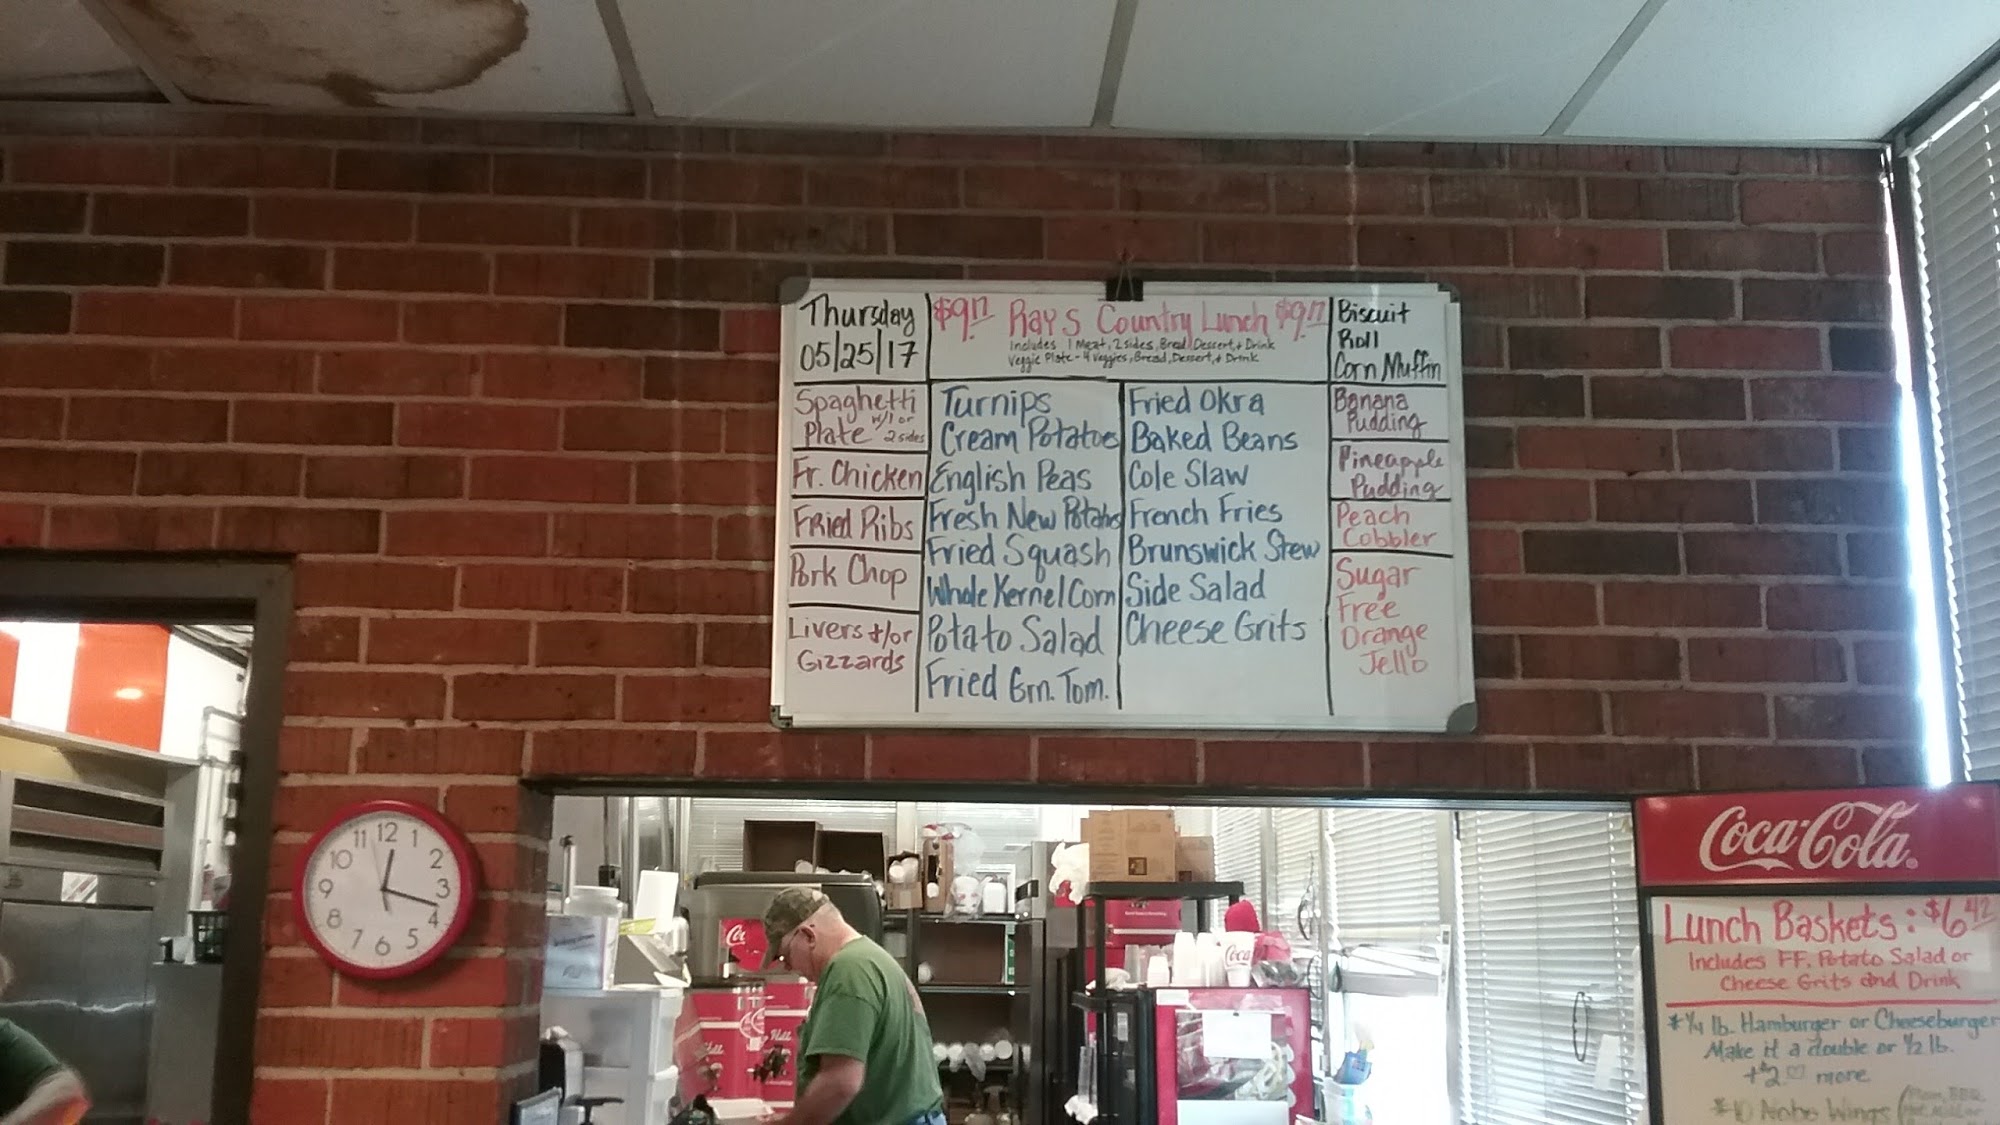 Thursday
05/25/17
$9.17 Rays Country Lunch $9.17
Includes 1 Meat, 2 sides, Bread, Dessert, + Drink
Veggie Plate - 4 Veggies, Bread, Dessert, + Drink
Biscuit
Roll
Corn Muffin
Spaghetti
Plate w/1 or
2 sides
Fr. Chicken
Fried Ribs
Pork Chop
Livers +/or
Gizzards
Turnips
Cream Potatoes
English Peas
Fresh New Potatos
Fried Squash
Whole Kernel Corn
Potato Salad
Fried Grn. Tom.
Fried Okra
Baked Beans
Cole Slaw
French Fries
Brunswick Stew
Side Salad
Cheese Grits
Banana
Pudding
Pineapple
Pudding
Peach
Cobbler
Sugar
Free
Orange
Jello
12
1
2
3
4
5
6
7
8
9
10
11
Coca-Cola
Lunch Baskets: $6.42
Includes FF, Potato Salad or
Cheese Grits and Drink
1/4 lb. Hamburger or Cheeseburger
Make it a double or 1/2 lb.
more
Wings
Coca